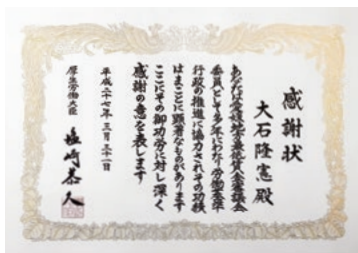 感謝状
大石隆憲殿
あなたは愛媛地方最低賃金審議会
委員として多年にわたり労働基準
行政の推進に協力されその功績
はまことに顕著なものがあります
ここにその御功労に対し深く
感謝の意を表します
平成二十七年三月三十一日
厚生労働大臣 塩崎恭久